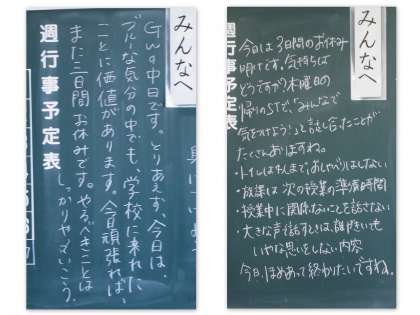 みんなへ
GW中日です。とりあえず、今日は、
ブルーな気分の中でも、学校に来れた
ことに価値があります。今日頑張れば、
また三日間お休みです。やるべきことは
しっかりやっていこう。
週行事予定表
みんなへ
今日は3日間のお休み
明けです。気持ちは
どうですか？木曜日の
帰りのSTで、みんなで
気をつけよう！と話し合ったことが
たくさんありますね。
・トイレは4人まで、おしゃべりはしない
・放課は次の授業の準備時間
・授業中に関係ないことを話さない
・大きな声で話すときは、誰がきいても
いやな思いをしない内容
今日、ほめあって終わりたいですね。
週行事予定表